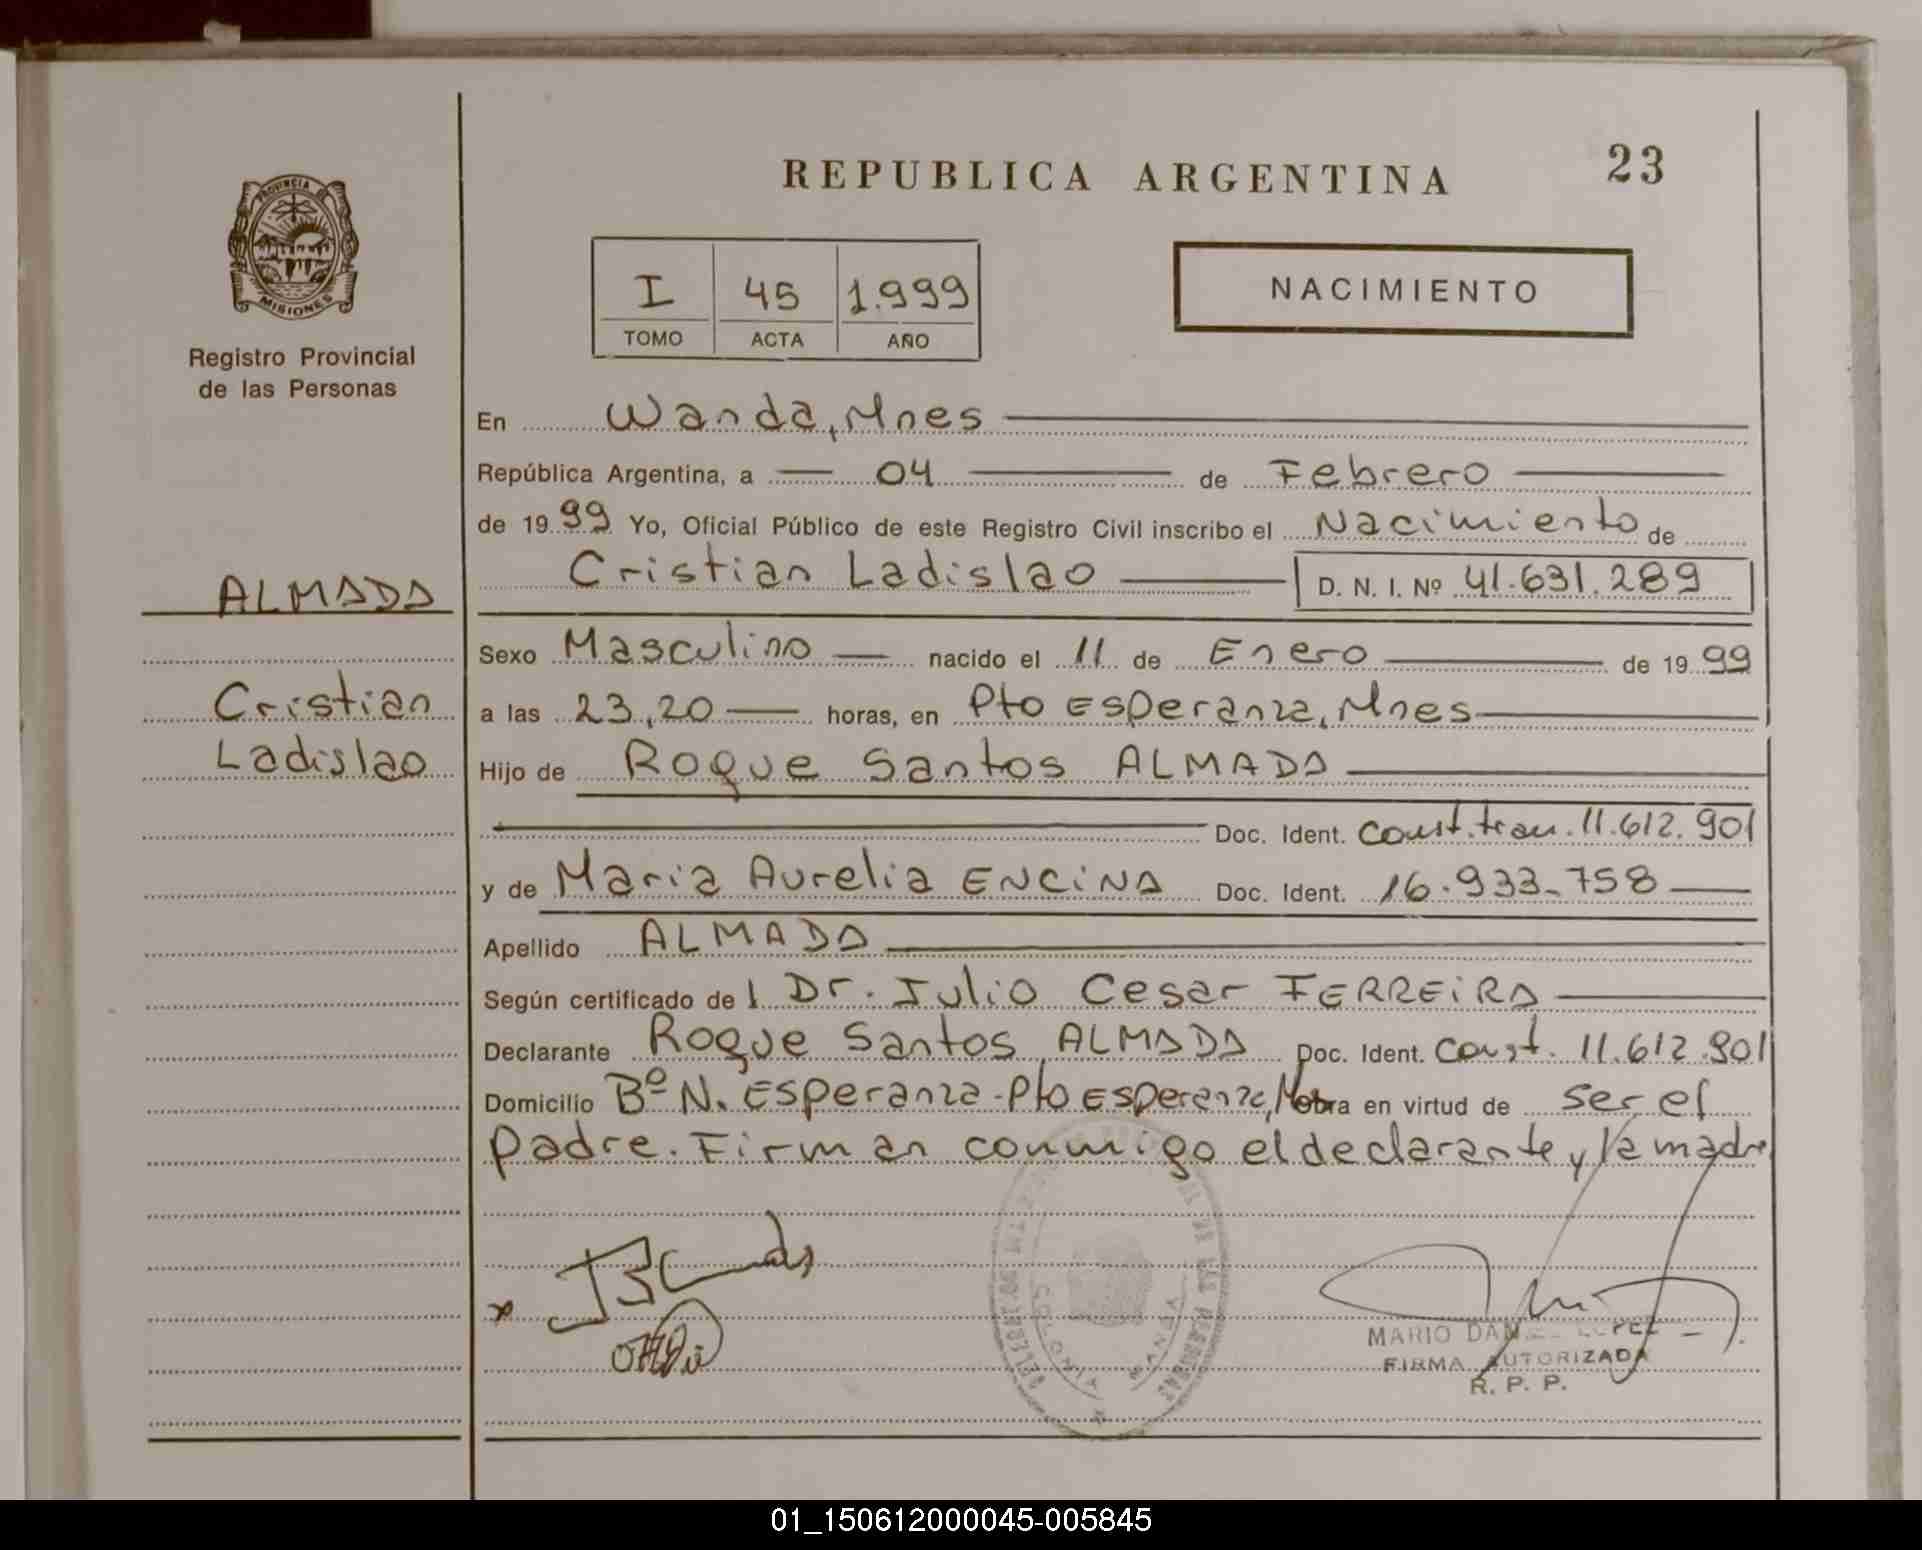 REPUBLICA ARGENTINA
23
PROVINCIA
MISIONES
Registro Provincial
de las Personas
I 45 1.999
TOMO ACTA AÑO
NACIMIENTO
En Wanda, Mnes
República Argentina, a 04 de Febrero
de 1999 Yo, Oficial Público de este Registro Civil inscribo el Nacimiento de
Cristian Ladislao D. N. I. Nº 41.631.289
ALMADA
Sexo Masculino nacido el 11 de Enero de 1999
Cristian
a las 23,20 horas, en Pto Esperanza, Mnes
Ladislao
Hijo de Roque Santos ALMADA
Doc. Ident. const. tram. 11.612.901
y de Maria Aurelia ENCINA Doc. Ident. 16.933.758
Apellido ALMADA
Según certificado de l Dr. Julio Cesar FERREIRA
Declarante Roque Santos ALMADA Doc. Ident. const. 11.612.901
Domicilio Bº N. Esperanza - Pto Esperanza, Obra en virtud de ser el
padre. Firman conmigo el declarante y la madre
COLONIA WANDA
MARIO LOPEZ
FIRMA AUTORIZADA
R. P. P.
01_150612000045-005845